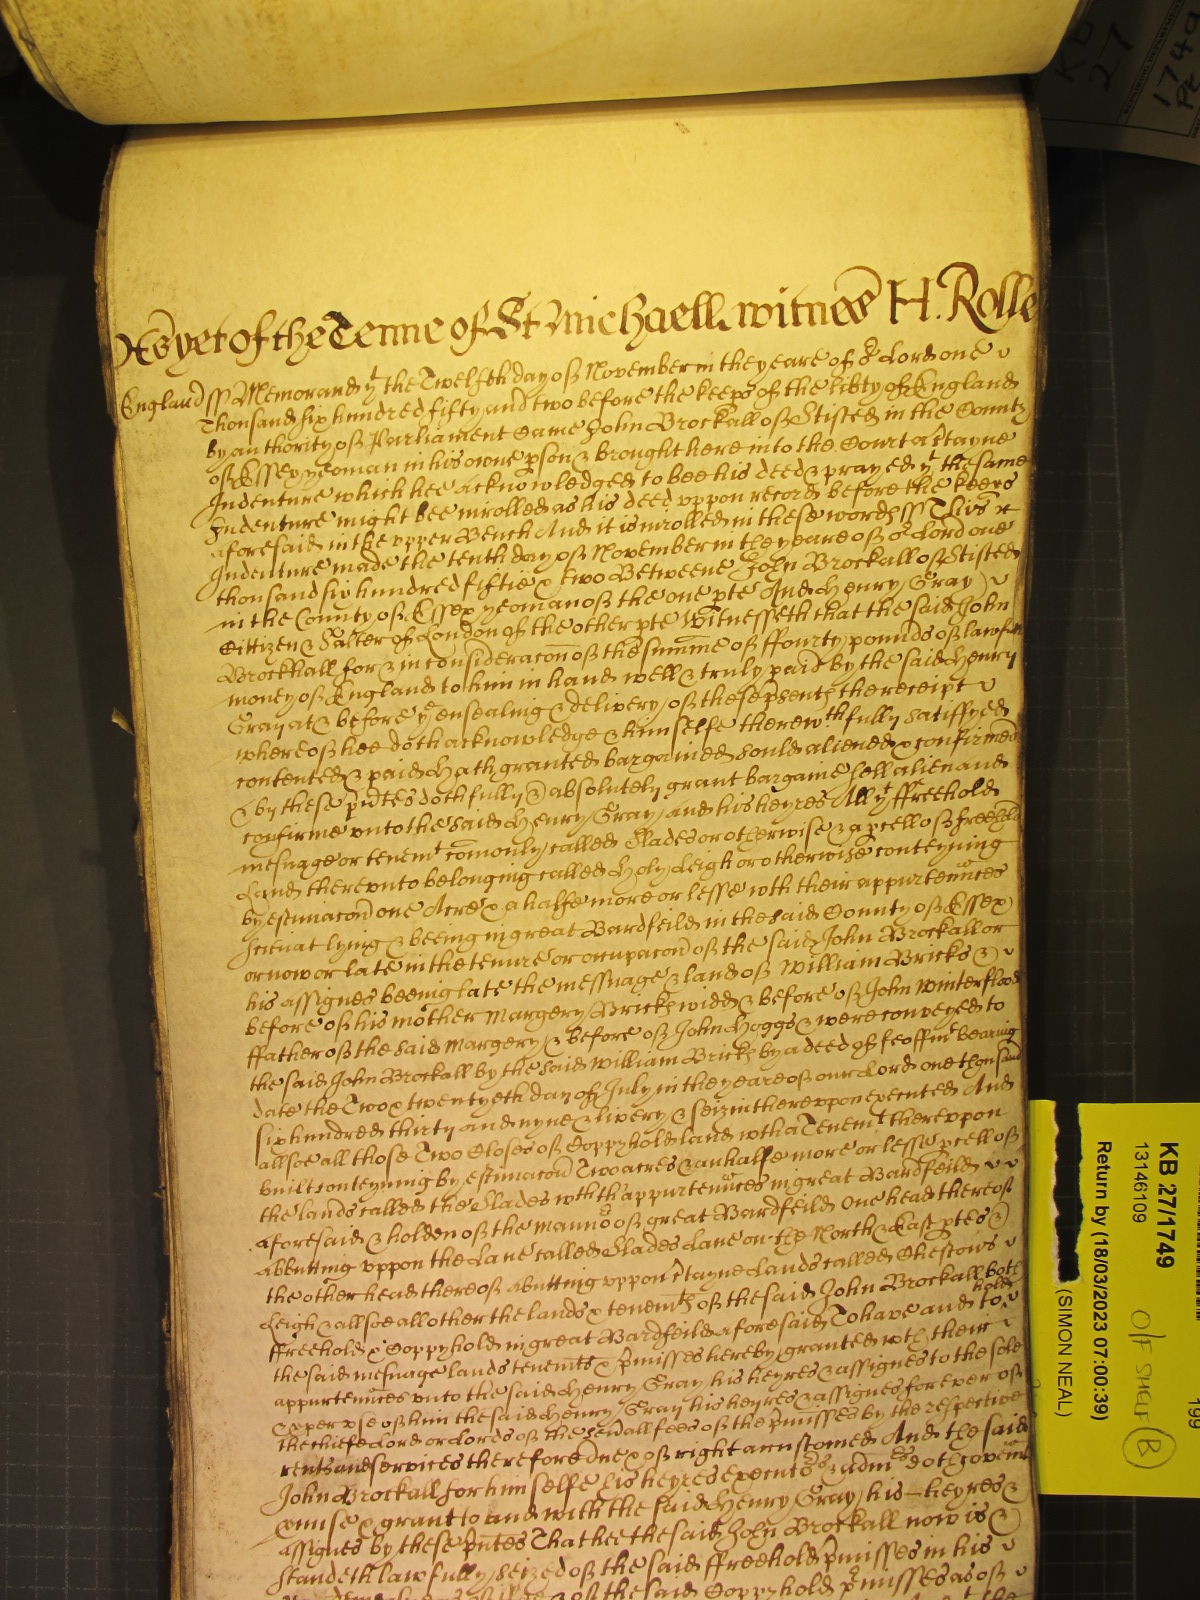 As yet of the Terme of St Michaell witnes H. Rolle
England ss Memorand yt the Twelfth day of November in the yeare of or Lord one
Thousand six hundred fifty and two before the keeps of the libty of England
by authority of Parliament Came John Brockall of Stisted in the County
of Essex yeoman in his owne pson & brought here into the Court a ctayne
Indenture which hee acknowledged to bee his deed & prayed yt the same
Indenture might bee inrolled as his deed uppon record before the keeps
aforesaid in the upper Bench And it is inrolled in these words ss This
Indenture made the tenth day of November in the yeare of or Lord one
thousand six hundred fiftie & two Betweene John Brockall of Stisted
in the County of Essex yeoman of the one pte And Henry Gray
Cittizen & Salter of London of the other pte Witnesseth that the said John
Brockhall for & in consideracon of the summe of ffourty pounds of lawfull
money of England to him in hand well & truly paid by the said Henry
Gray at & before ye ensealing & delivery of these psents the receipt
whereof hee doth acknowledge & himselfe therewth fully satisfyed
contented & paid Hath granted bargained sould aliened & confirmed
& by these pntes doth fully & absolutely grant bargaine sell alien and
confirme unto the said Henry Gray and his heyres All yt ffreehold
mesuage or tenemt comonly called Slades or otherwise & a pcell of freehold
Land thereunto belonging called Holy Leigh or otherwise conteyning
by estimacon one Acre & a halfe more or lesse wth their appurtennces
scituat lying & beeing in great Bardfeild in the said County of Essex
or now or late in the tenure or occupacon of the said John Brockall or
his assignes beeing late the messuage & land of William Bricks &
before of his mother Margery Bricks widd & before of John Winterflood
ffather of the said Margery & before of John Hoggs & were conveyed to
the said John Brockall by the said William Bricks by a deed of feoffmt bearing
date the Two & twentyeth day of July in the yeare of our Lord one thousand
six hundred thirty and nyne & livery & seizin thereuppon executed And
allsoe all those Two Closes of Coppyhold land wth a Tenemt thereuppon
built conteyning by estimacon Two acres & an halfe more or lesse pcell of
the lands called the Slades wth th'appurtennces in great Bardfeild
aforesaid & holden of the mannor of great Bardfeild One head thereof
abutting uppon the Lane called Slades Lane on the North & East ptes &
the other head thereof abutting uppon ctayne Lands called
Leigh & allsoe all other the lands & tenemts of the said John Brockall both
ffreehold & Coppyhold in great Bardfeild aforesaid To have and to hold
the said mesuage lands tenemts & pmisses hereby granted wth their
appurtennces unto the said Henry Gray his heyres & assignes to the sole
& pper use of him the said Henry Gray his heyres & assignes for ever of
the chiefe Lord or Lords of the fee or fees of the pmisses by the respective
rents and services therefore due & of right accustomed And the said
John Brockall for himselfe his heyres executrs & admrs doth covennt
pmise & grant to and with the said Henry Gray his heyres &
assignes by these pntes That hee the said John Brockall now is &
standeth lawfully seized of the said ffreehold pmisses in his
of the said Coppyhold pmisses as of
KB 27/1749
13146109
Return by (18/03/2023 07:00:39)
(SIMON NEAL)
O/F SHELF B
199
KB
27
1749